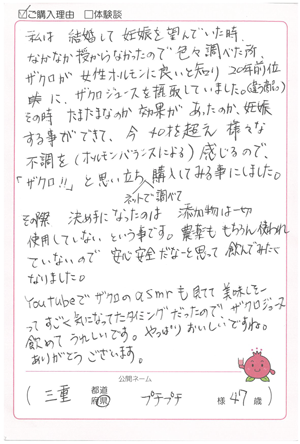 ☑ご購入理由 □体験談
私は 結婚して 妊娠を望んでいた時、
なかなか授からなかったので 色々調べた所、
ザクロが 女性ホルモンに良いと知り 20年前位
に、ザクロジュースを摂取していました。(違う商品)
その時 たまたまなのか 効果があったのか、妊娠
する事ができて、今 40を超え 様々な
不調を(ホルモンバランスによる)感じるので、
「ザクロ!!」と思い立ち 購入してみる事にしました。
ネットで調べて
その際 決め手になったのは 添加物は一切
使用していない という事です。農薬も もちろん使われ
ていないので 安心安全だなーと思って 飲んでみたく
なりました。
Youtubeで ザクロの asmr も見てて 美味しそー
って すごく気になってたタイミングだったので、ザクロジュース
飲めて うれしいです。やっぱり おいしいですね。
ありがとう ございます。
公開ネーム
( 三重 都道府県 プチプチ 様 47 歳 )